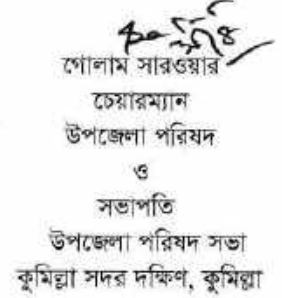 গোলাম সারওয়ার
চেয়ারম্যান
উপজেলা পরিষদ
ও
সভাপতি
উপজেলা পরিষদ সভা
কুমিল্লা সদর দক্ষিণ, কুমিল্লা